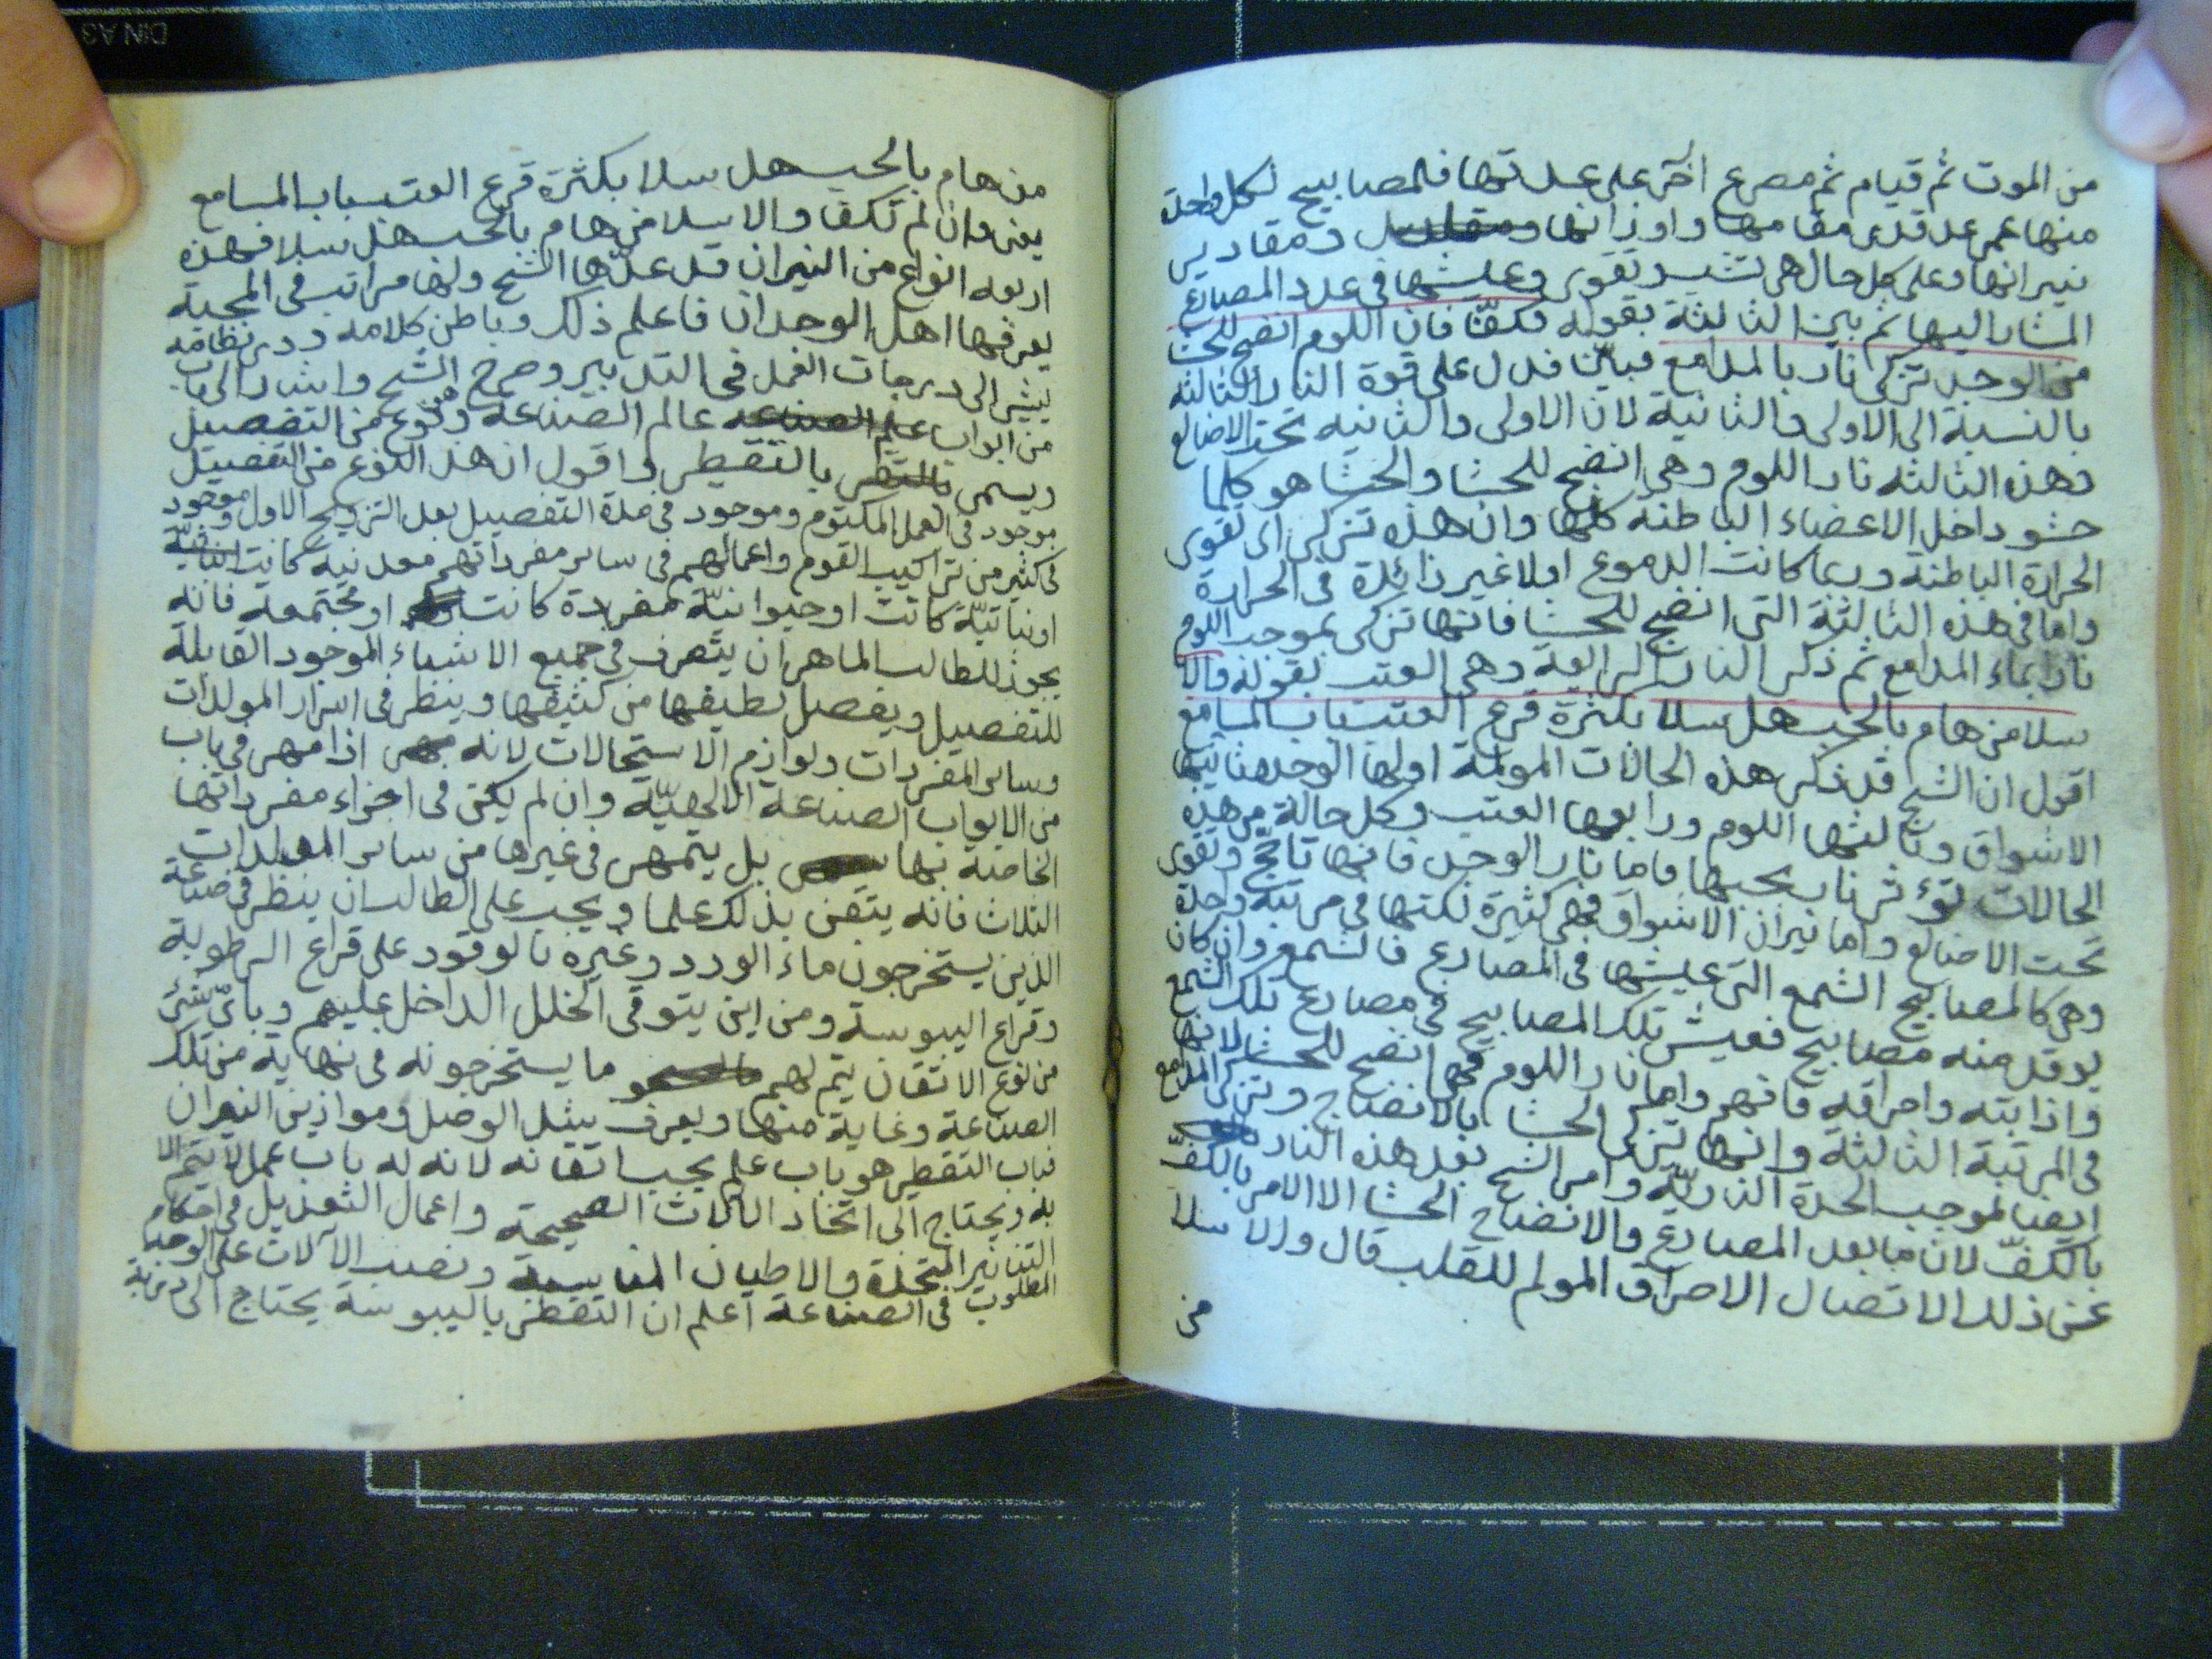 من الموت ثم قيام ثم مصرع آخر على عدتها فلمصابيح لكل واحدة
منها عمر على قدر مقامها واوزانها ومقادير
نيرانها وعلى كل حال هي تشد تقوى وعيشها في عدد المصارع
المشار اليها ثم بين الثالثة بقوله فكفّا فان اللوم انضج للحشا
من الوجد تزكى نار بالمدامع فبيّن فدل على قوة النار الثالثه
بالنسبة الى الاولى والثانية لان الاولى والثانيه تحت الاضالع
وهذه الثالثه نار اللوم وهي انضج للحشا والحشا هو كلما
حشو داخل الاعضاء الباطنة كلها وان هذه تزكى اى تقوى
الحرارة الباطنة وربما كانت الدموع اولا غير زائدة فى الحرارة
واما فى هذه الثالثة التى انضج للحشا فانها تزكى بموجب اللوم
نارا بماء المدامع ثم ذكر النار الرابعة وهى العتب بقوله والا
سلا من هام بالحب هل سلا بكثرة قرع العتب باب المسامع
اقول ان الشيخ قد ذكر هذه الحالات المولمة اولها الوجد وثانيها
الاشواق وثالثها اللوم ورابعها العتب وكل حالة من هذه
الحالات تؤثر نار بحبها فاما نار الوجد فانها تاجج وتقوى
تحت الاضالع واما نيران الاشواق فهى كثيرة لكنها فى مرتبة واحدة
وهى كالمصابيح الشمع التى عيشها فى المصارع فالشمع وان كان
يوقد منه مصابيح فعيش تلك المصابيح فى مصارع تلك الشمع
واذابته واحراقه فافهم واما نار اللوم فهى انضج للحشا لانها
فى المرتبة الثالثة وانها تزكى الحشا بالانضاج وتزكى المدامع
ايضا لموجب الحدة الناريّة وامر الشيخ بعد هذه النار
بالكفّ لان ما بعد المصارع والانضاج الحشا الا الامر بالكفّ
عن ذلك الاتصال الاحراق المولم للقلب قال والا سلا
من
من هام بالحب هل سلا بكثرة قرع العتب باب المسامع
يعنى وان لم تكفا والا سلا من هام بالحب هل سلا فهذه
اربعه انواع من النيران قد عدّها الشيخ ولها مراتب فى المحبة
يعرفها اهل الوجدان فاعلم ذلك وباطن كلامه ودر نظامه
يشير الى درجات العمل فى التدبير وصرح الشيخ واشار الى باب
من ابواب عالم الصناعة ونوع من التفصيل
ويسمى بالتقطير واقول ان هذا النوع من التفصيل
موجود فى العمل المكتوم وموجود فى مدة التفصيل بعد التزويج الاول وموجود
فى كثير من تراكيب القوم واعمالهم فى ساير مفرداتهم معدنية كانت
او نباتيّة كانت او حيوانيّة مفردة كانت او مجتمعة فانه
يجوز للطالب الماهر ان يتصرف فى جميع الاشياء الموجود القابلة
للتفصيل ويفصل لطيفها من كثيفها وينظر فى اسرار المولدات
وساير المفردات ولوازم الاستحالات لانه اذا مهر فى باب
من الابواب الصناعة الالهيّة وان لم يكن فى اجزاء مفرداتها
الخاصة بها بل يتمهر فى غيرها من ساير المولدات
الثلاث فانه يتقن بذلك علما ويجب على الطالب ان ينظر فى صناعة
الذين يستخرجون ماء الورد وغيره بالوقود على قراع الرطوبة
وقراع اليبوسة ومن اين يتوقى الخلل الداخل عليهم وباىّ شىء
من نوع الاتقان يتم لهم ما يستخرجونه فى نهاية من تلك
الصناعة وغاية منها ويعرف بيثل الوصل وموازين النيران
فباب التقطير هو باب علم يجب اتقانه لانه له باب عمل لا يتم الا
به ويحتاج الى اتخاذ الالات الصحيحة واعمال التعديل فى احكام
التنانير المتخذة والاطيان المناسبة ونصب الآلات على الوجه
المطلوب فى الصناعة اعلم ان التقطير باليبوسة يحتاج الى دربة